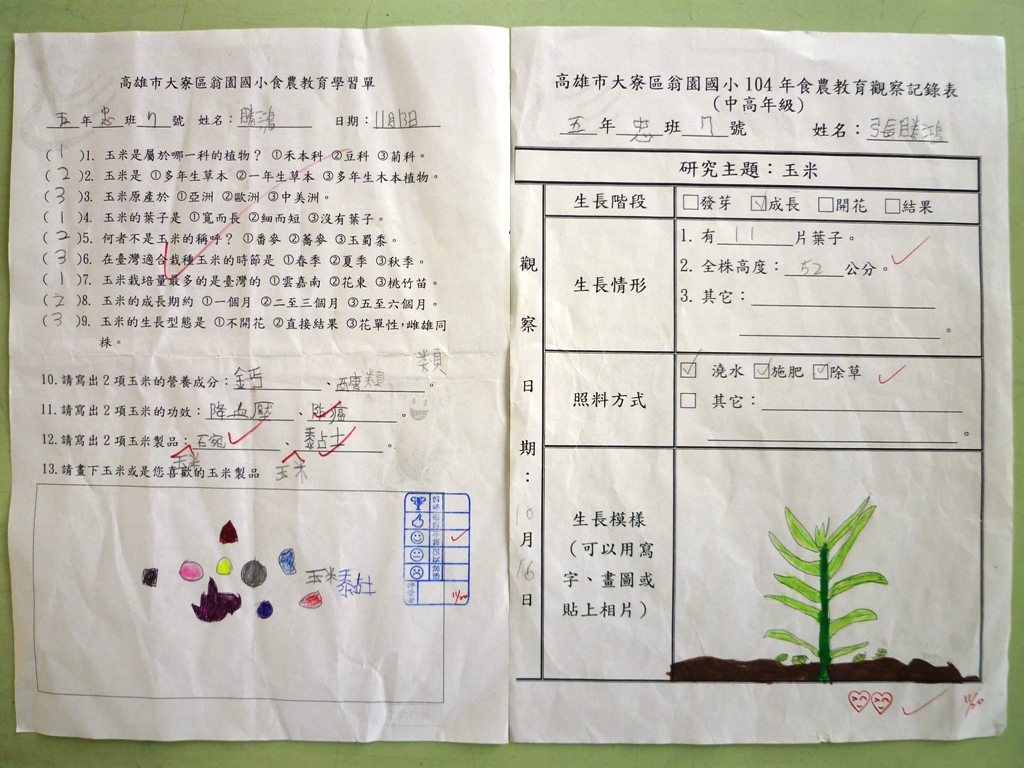 高雄市大寮區翁園國小食農教育學習單
五年忠班7號 姓名：勝鴻 日期：11月13日
(1)1. 玉米是屬於哪一科的植物？ ①禾本科 ②豆科 ③菊科。
(2)2. 玉米是 ①多年生草本 ②一年生草本 ③多年生木本植物。
(3)3. 玉米原產於 ①亞洲 ②歐洲 ③中美洲。
(1)4. 玉米的葉子是 ①寬而長 ②細而短 ③沒有葉子。
(2)5. 何者不是玉米的稱呼？ ①番麥 ②蕎麥 ③玉蜀黍。
(3)6. 在臺灣適合栽種玉米的時節是 ①春季 ②夏季 ③秋季。
(1)7. 玉米栽培量最多的是臺灣的 ①雲嘉南 ②花東 ③桃竹苗。
(2)8. 玉米的成長期約 ①一個月 ②二至三個月 ③五至六個月。
(3)9. 玉米的生長型態是 ①不開花 ②直接結果 ③花單性，雌雄同
株。
類
10.請寫出2項玉米的營養成分：鈣、醣類。
11.請寫出2項玉米的功效：降血壓、防癌。
12.請寫出2項玉米製品：石宛、黏土。
玉米 玉米
13.請畫下玉米或是您喜歡的玉米製品
玉米黏土
11/20
高雄市大寮區翁園國小104年食農教育觀察記錄表
（中高年級）
五年忠班7號 姓名：張勝鴻
研究主題：玉米
觀察日期：10月16日
生長階段 □發芽 ☑成長 □開花 □結果
生長情形
1. 有11片葉子。
2. 全株高度：52公分。
3. 其它：
。
照料方式
☑ 澆水 ☑施肥 ☑除草
□ 其它：
。
生長模樣
（可以用寫
字、畫圖或
貼上相片）